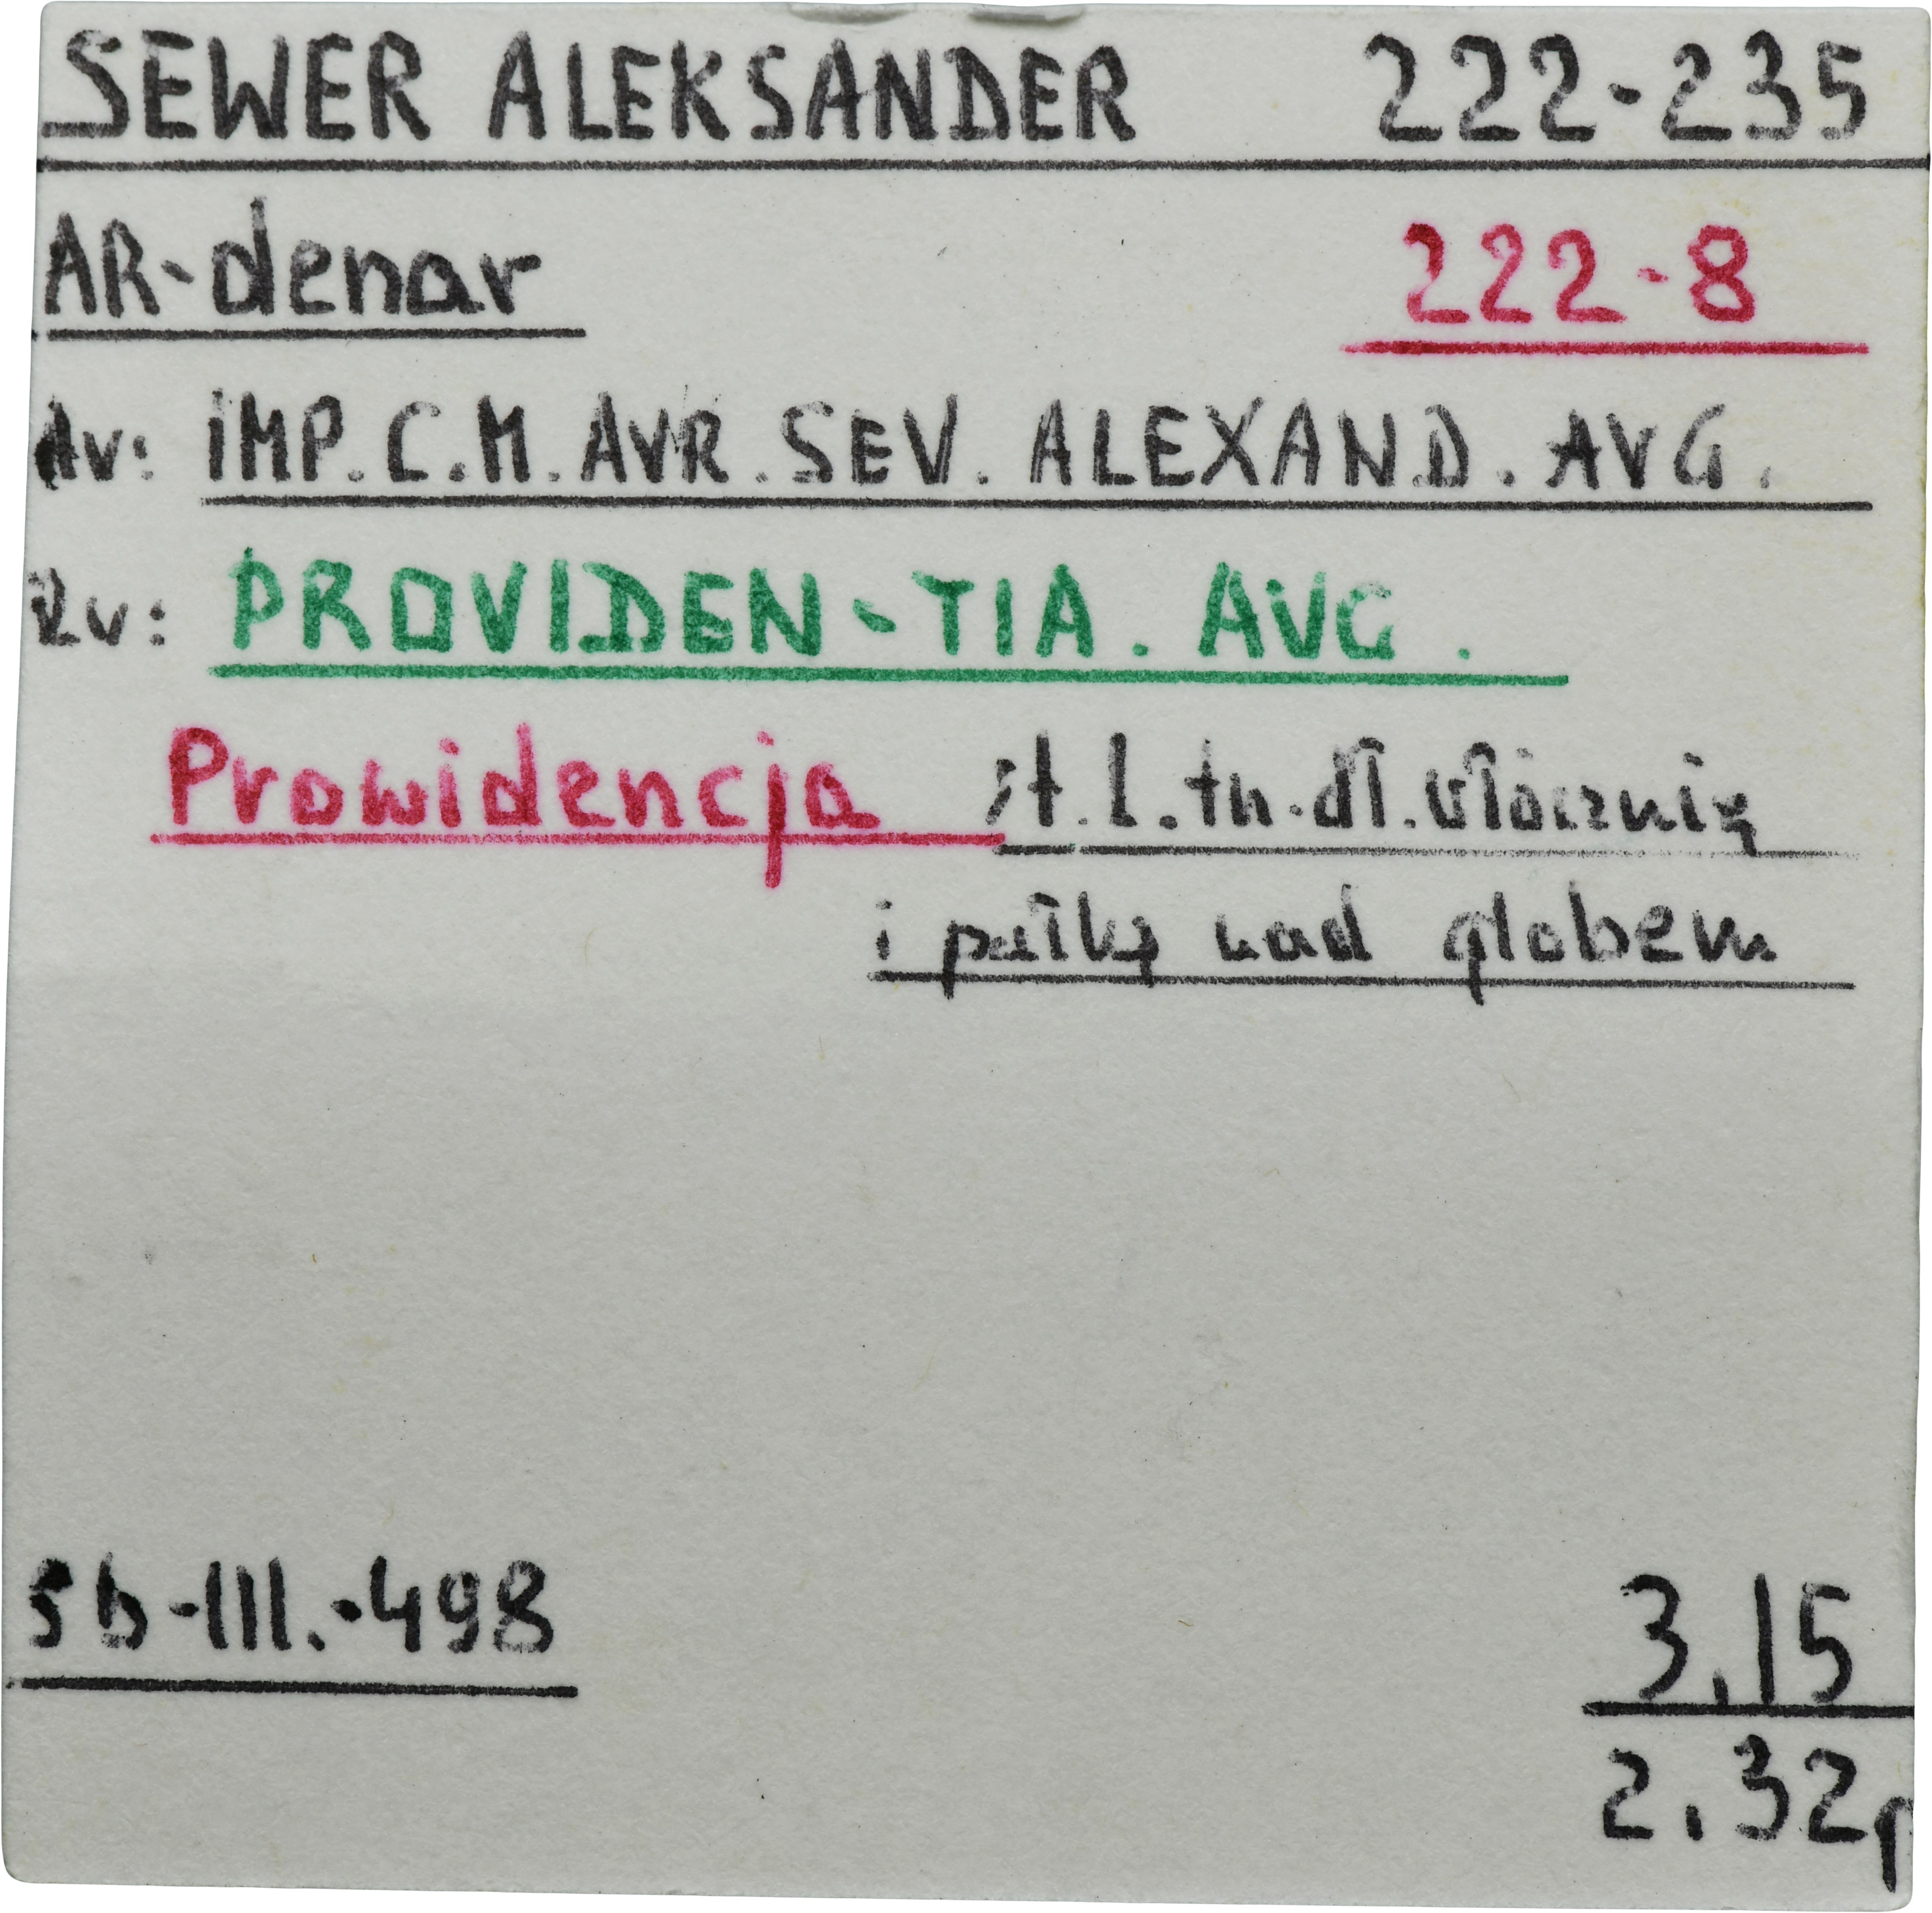 SEWER ALEKSANDER 222-235
AR-denar 222-8
Av: IMP.C.M.AVR.SEV.ALEXAND.AVG.
Rv: PROVIDEN-TIA.AVG.
Prowidencja st.l.tn.dł.włócznię
i pałkę nad globem
Sb-III.-498 3,15
2,32